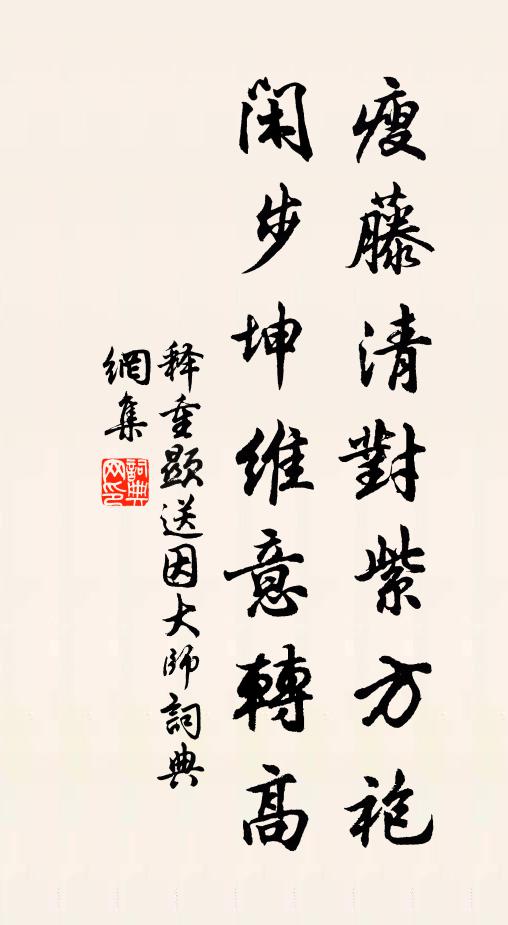 瘦藤清對紫方袍
閑步坤維意轉高
释重顯送因大師詞典
網集
詞典網印